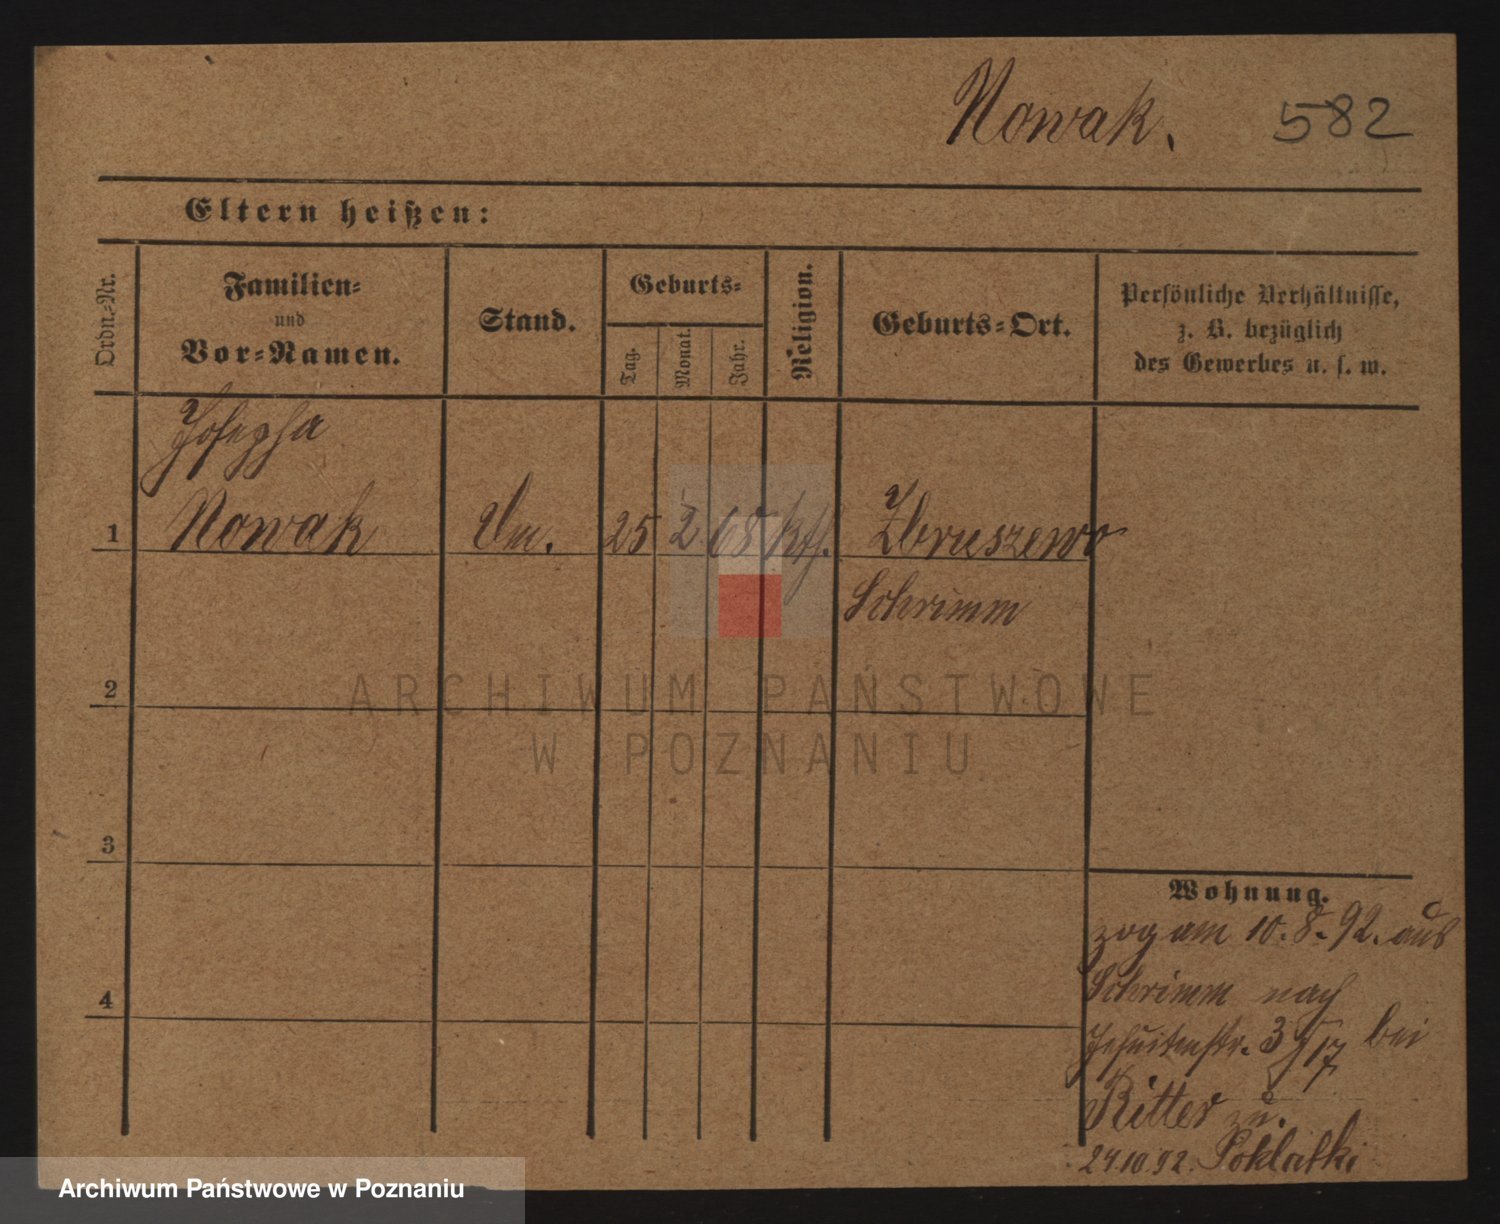 Nowak. 582
Eltern heißen:
Ordn.-Nr.
Familien-
und
Vor-Namen.
Stand.
Geburts-
Tag.
Monat.
Jahr.
Religion.
Geburts-Ort.
Persönliche Verhältnisse,
z. B. bezüglich
des Gewerbes u. s. w.
Josepha
1 Nowak 25 2 68 kth. Zbruszewo
Schrimm
2
3
4
Wohnung.
zog am 10.8.92. aus
Schrimm nach
Jesuitenstr. bei
Ritter zu.
24.10.92. Poklatki
ARCHIWUM PAŃSTWOWE
W POZNANIU
Archiwum Państwowe w Poznaniu